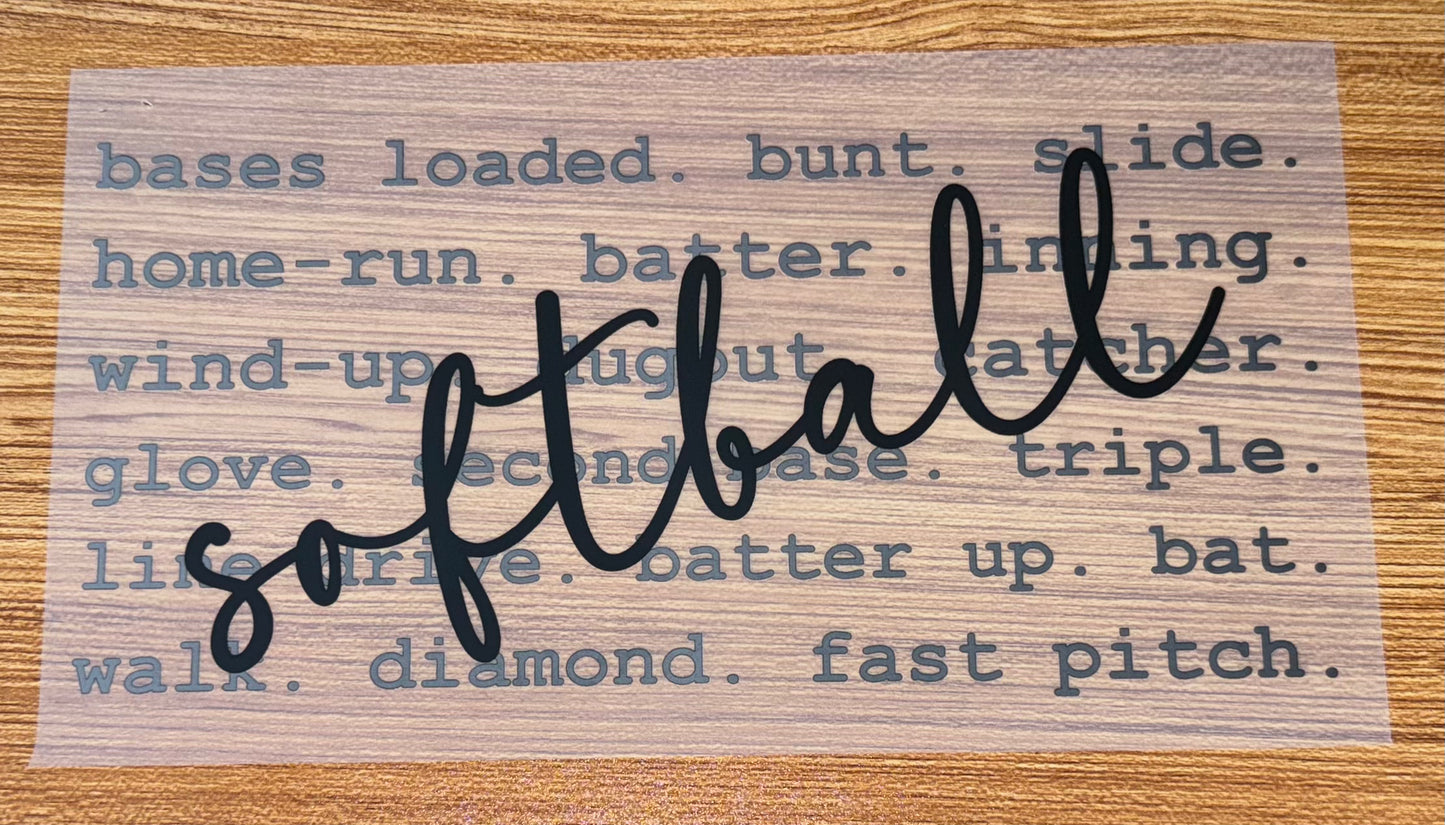 bases loaded. bunt. slide.
home-run. batter. inning.
wind-up. dugout. catcher.
glove. second base. triple.
line drive. batter up. bat.
walk. diamond. fast pitch.
softball